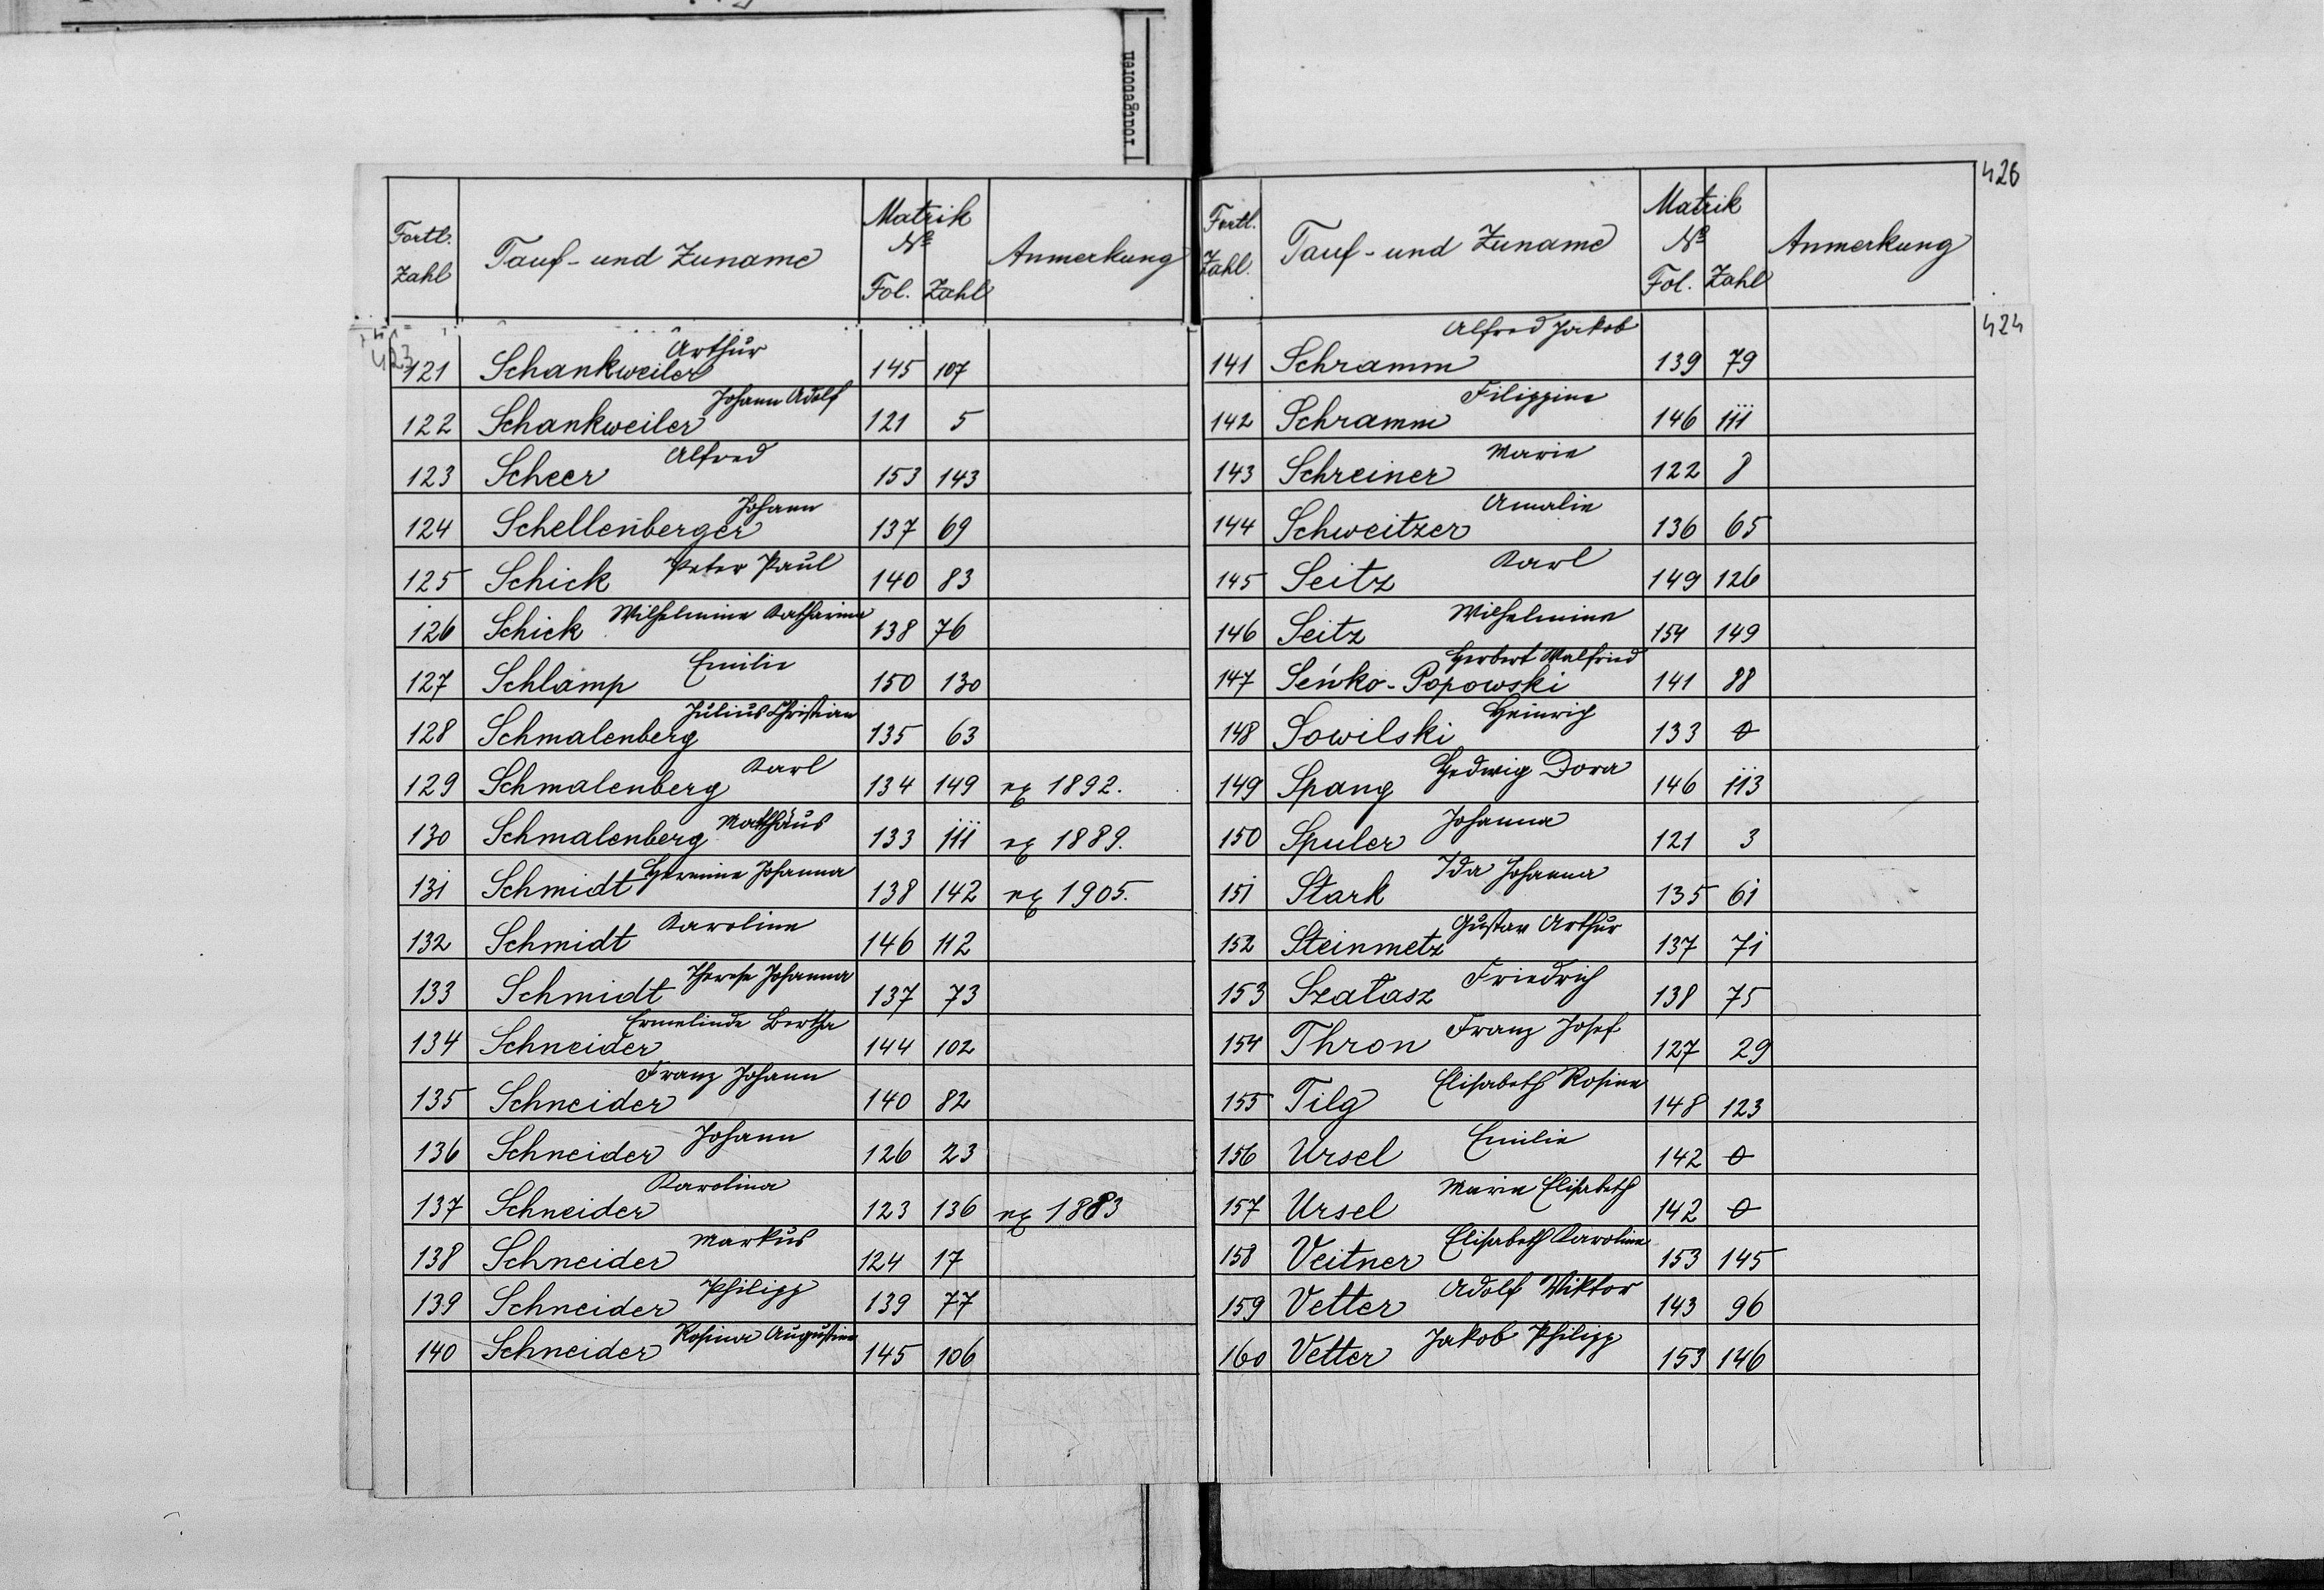 Fortl. Zahl | Tauf- und Zuname | Matrik № Fol. | Zahl | Anmerkung
423
121 Schankweiler Arthur 145 107
122 Schankweiler Johann Adolf 121 5
123 Scheer Alfred 153 143
124 Schellenberger Johann 137 69
125 Schick Peter Paul 140 83
126 Schick Wilhelmine Katharina 138 76
127 Schlamp Emilie 150 130
128 Schmalenberg Julius Christian 135 63
129 Schmalenberg Karl 134 149 ex 1892.
130 Schmalenberg Mathäus 133 111 ex 1889.
131 Schmidt Hermine Johanna 138 142 ex 1905.
132 Schmidt Karoline 146 112
133 Schmidt Therese Johanna 137 73
134 Schneider Ermelinde Bertha 144 102
135 Schneider Franz Johann 140 82
136 Schneider Johann 126 23
137 Schneider Karolina 123 136 ex 1883
138 Schneider Markus 124 17
139 Schneider Philipp 139 77
140 Schneider Rosina Augustine 145 106
426
Fortl. Zahl. | Tauf- und Zuname | Matrik № Fol. | Zahl | Anmerkung
424
141 Schramm Alfred Jakob 139 79
142 Schramm Filippine 146 111
143 Schreiner Marie 122 8
144 Schweitzer Amalie 136 65
145 Seitz Karl 149 126
146 Seitz Wilhelmine 154 149
147 Seńko-Popowski Herbert Walfried 141 88
148 Sowilski Heinrich 133 0
149 Spang Hedwig Dora 146 113
150 Spuler Johanna 121 3
151 Stark Ida Johanna 135 61
152 Steinmetz Gustav Arthur 137 71
153 Szatasz Friedrich 138 75
154 Thron Franz Josef 127 29
155 Tilg Elisabeth Rosine 148 123
156 Ursel Emilie 142 0
157 Ursel Marie Elisabeth 142 0
158 Veitner Elisabeth Karoline 153 145
159 Vetter Adolf Viktor 143 96
160 Vetter Jakob Philipp 153 146